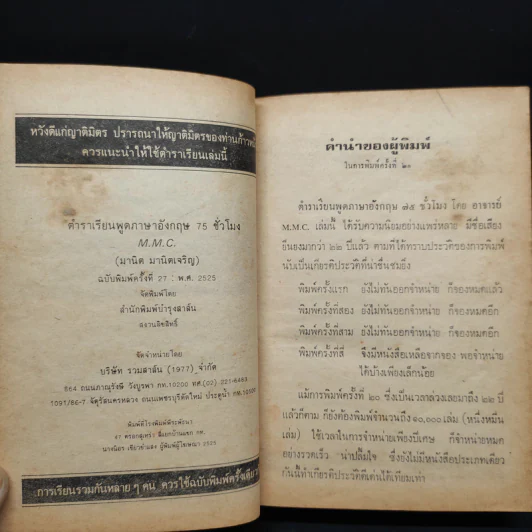 หวังดีแก่ญาติมิตร ปรารถนาให้ญาติมิตรของท่านก้าวหน้า
ควรแนะนำให้ใช้ตำราเรียนเล่มนี้
ตำราเรียนพูดภาษาอังกฤษ 75 ชั่วโมง
M.M.C.
(มานิต มานิตเจริญ)
ฉบับพิมพ์ครั้งที่ 27 : พ.ศ. 2525
จัดพิมพ์โดย
สำนักพิมพ์บำรุงสาส์น
สงวนลิขสิทธิ์
จัดจำหน่ายโดย
บริษัท รวมสาส์น (1977) จำกัด
864 ถนนภาณุรังษี วังบูรพา กท.10200 ทศ.(02) 221-6483
1091/86-7 จัตุรัสนครหลวง ถนนเพชรบุรีตัดใหม่ ประตูน้ำ กท.10400
47 ตรอกสุเทร์ร สี่แยกบ้านแขก กท.
2525
การเรียนรวมกันหลาย ๆ คน ควรใช้ฉบับพิมพ์ครั้งเดียว
คำนำของผู้พิมพ์
ในการพิมพ์ครั้งที่ ๒๑
ตำราเรียนพูดภาษาอังกฤษ ๗๕ ชั่วโมง โดย อาจารย์
M.M.C. เล่มนี้ ได้รับความนิยมอย่างแพร่หลาย มีชื่อเสียง
ยืนยงมากว่า ๒๒ ปีแล้ว ตามที่ได้ทราบประวัติของการพิมพ์
นับเป็นเกียรติประวัติที่น่าชื่นชมยิ่ง
พิมพ์ครั้งแรก ยังไม่ทันออกจำหน่าย ก็จองหมดแล้ว
พิมพ์ครั้งที่สอง ยังไม่ทันออกจำหน่าย ก็จองหมดอีก
พิมพ์ครั้งที่สาม ยังไม่ทันออกจำหน่าย ก็จองหมดอีก
พิมพ์ครั้งที่สี่ จึงมีหนังสือเหลือจากจอง พอจำหน่าย
ได้บ้างเพียงเล็กน้อย
แม้การพิมพ์ครั้งที่ ๒๐ ซึ่งเป็นเวลาล่วงเลยมาถึง ๒๒ ปี
แล้วก็ตาม ก็ยังต้องพิมพ์จำนวนถึง ๑๐,๐๐๐ เล่ม (หนึ่งหมื่น
เล่ม) ใช้เวลาในการจำหน่ายเพียงปีเศษ ก็จำหน่ายหมด
อย่างรวดเร็ว น่าปลื้มใจ ซึ่งยังไม่มีหนังสือประเภทเดียว
กันนี้ทำเกียรติประวัติดีเด่นได้เทียมเท่า